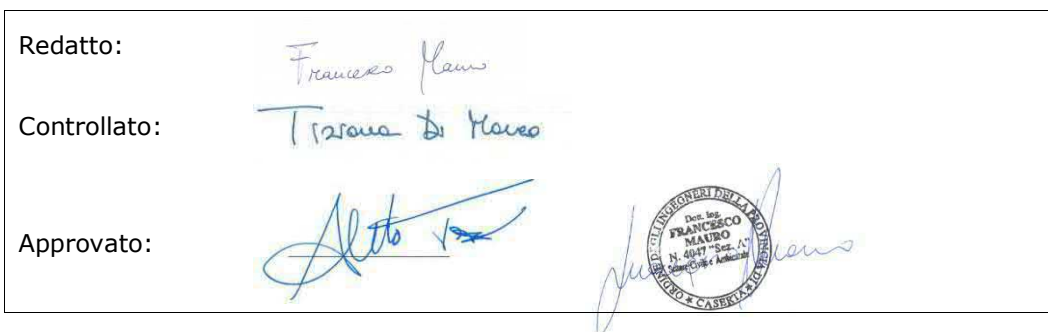 Redatto:
Francesco Mauro
Controllato:
Tiziana Di Marco
Approvato:
ORDINE DEGLI INGEGNERI DELLA PROVINCIA DI CASERTA
Dott. Ing.
FRANCESCO
MAURO
N. 4047 "Sez. A"
Settore Civile e Ambientale